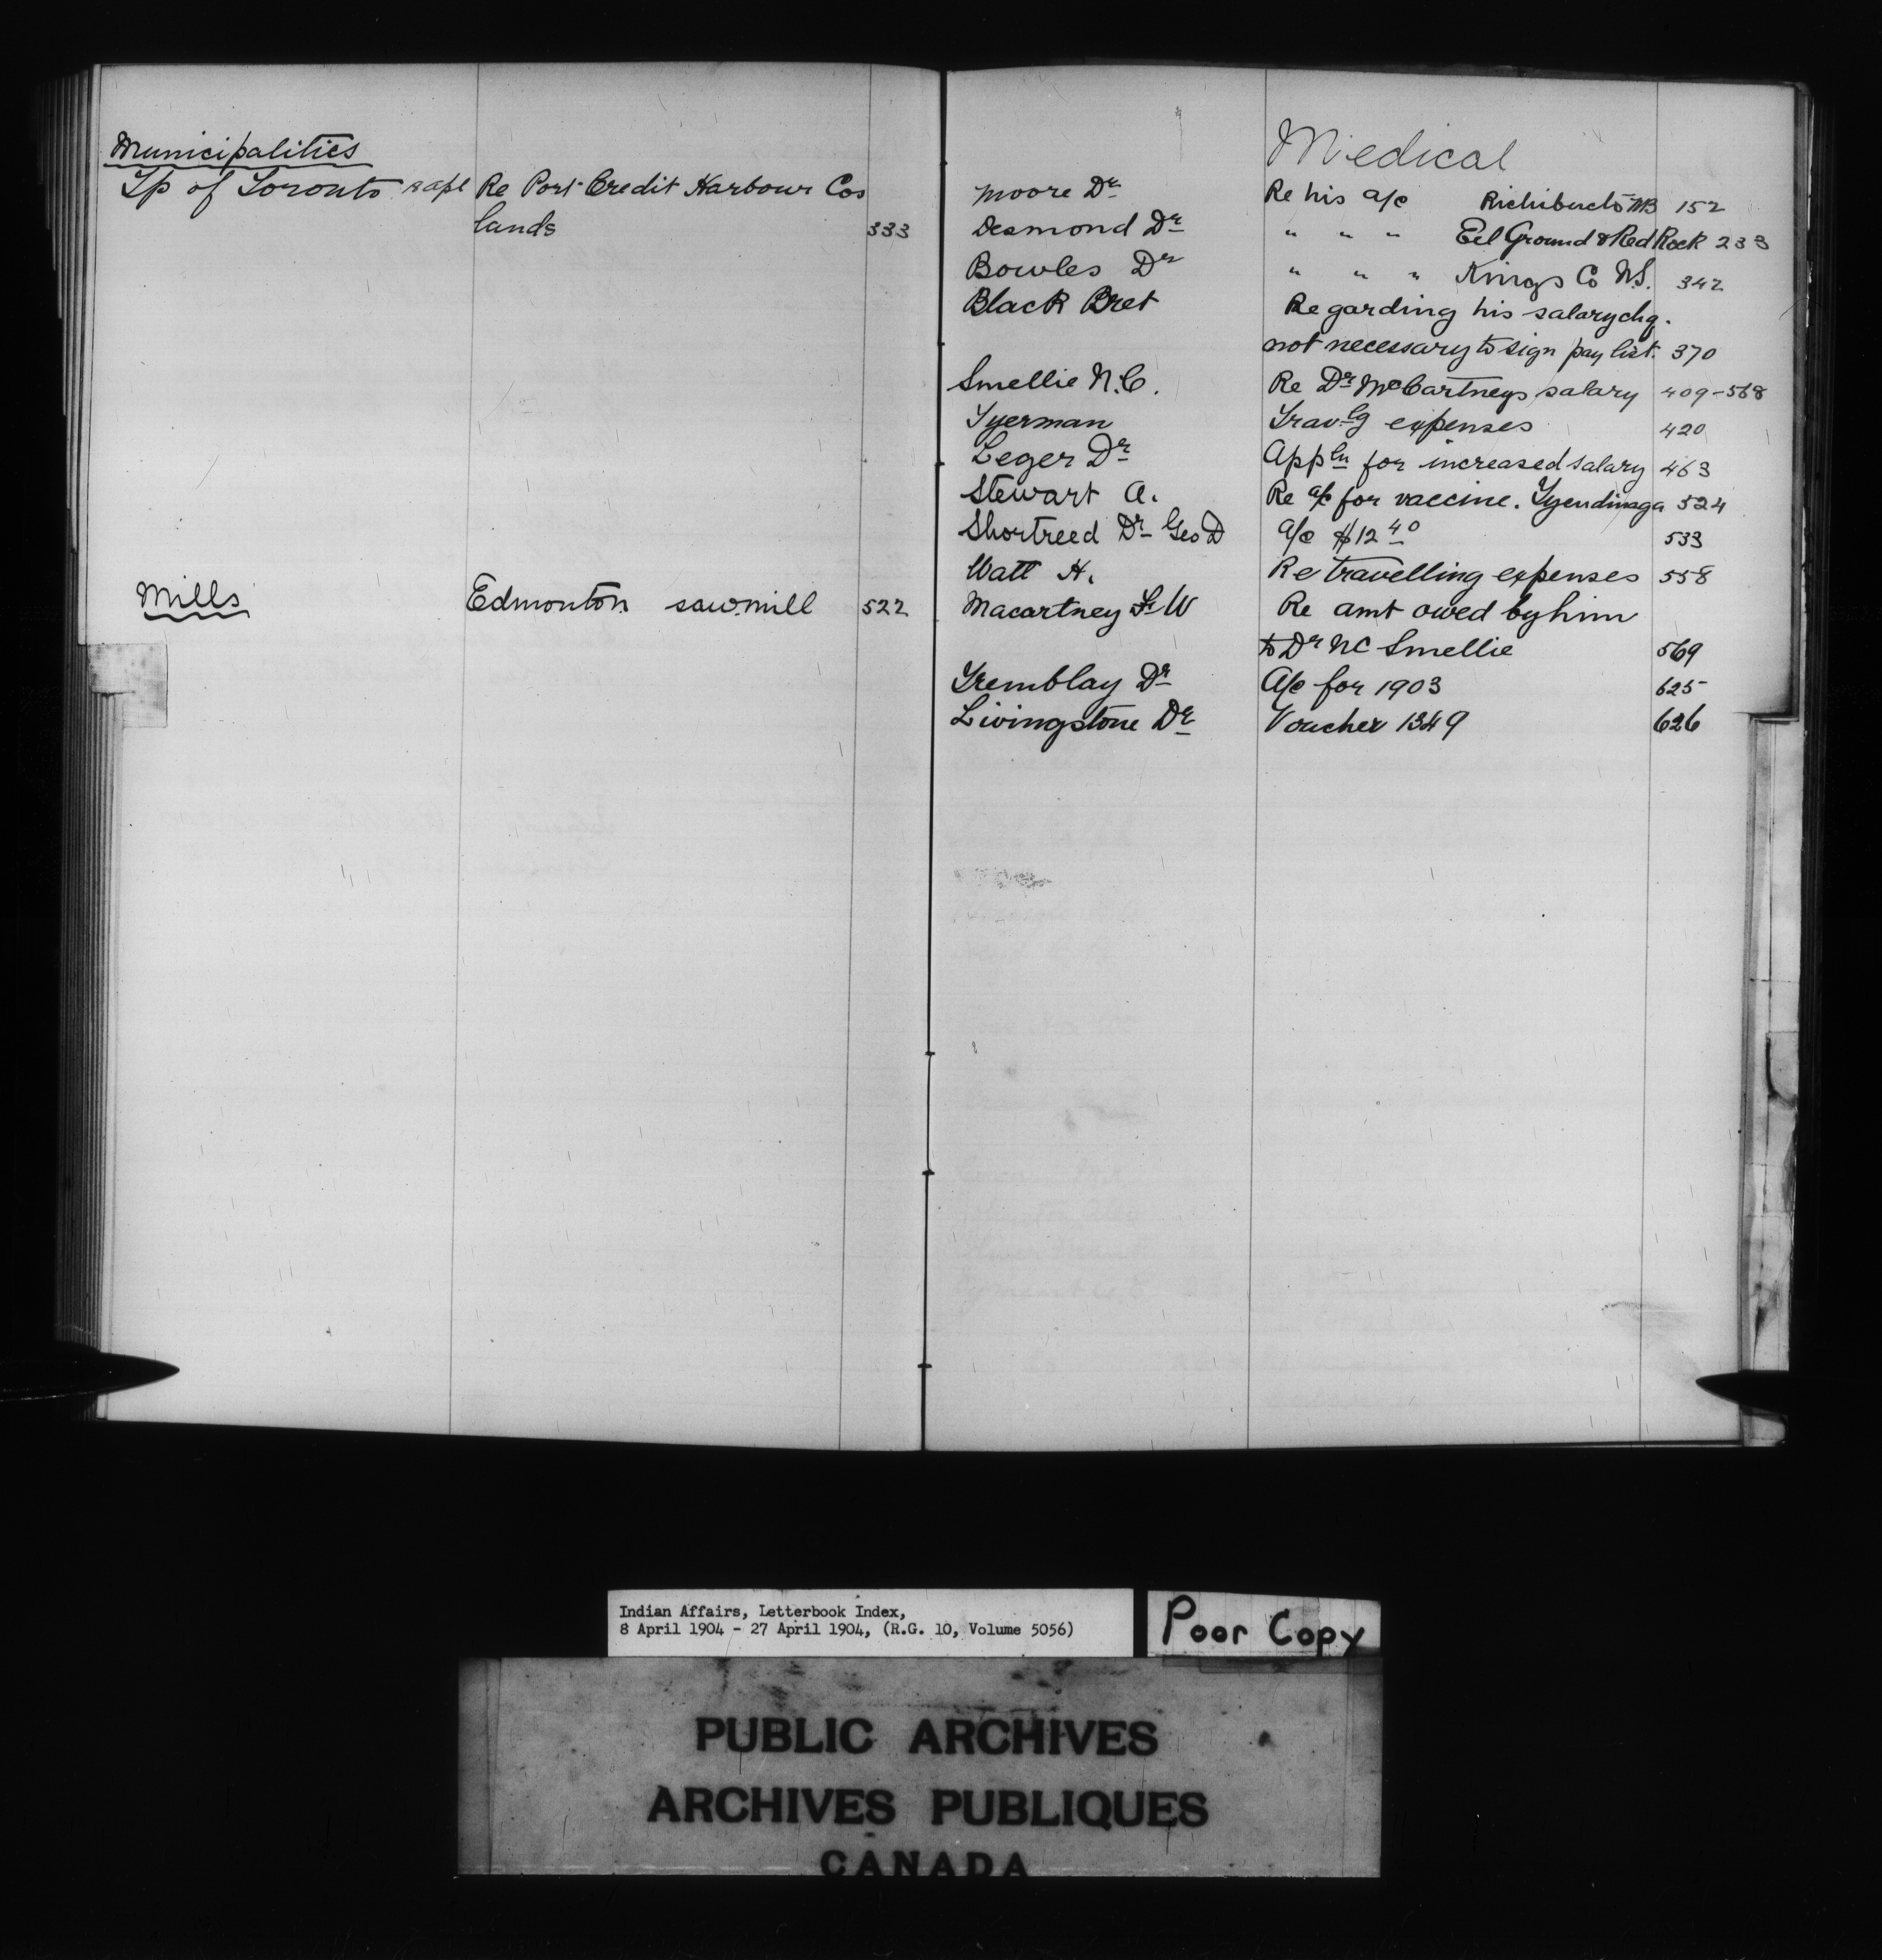 Municipalities
Tp of Toronto Re Port Credit Harbour Cos
lands 333
Mills Edmonton sawmill 522
Medical
Moore Dr Re his a/c Richibucto NB 152
Desmond Dr " " " Eel Ground & Red Rock 233
Bowles Dr " " " Kings Co N.S. 342
Black Bret Regarding his salary chq.
not necessary to sign pay list. 370
Smellie N.C. Re Dr McCartneys salary 409-568
Tyerman Travlg expenses 420
Leger Dr Appln for increased salary 463
Stewart A. Re a/c for vaccine. Tyendinaga 524
Shortreed Dr Geo D a/c $12 40 533
Watt H. Re travelling expenses 558
Macartney Fr W Re amt owed by him
to Dr NC Smellie 569
Tremblay Dr A/c for 1903 625
Livingstone Dr Voucher 1349 626
Indian Affairs, Letterbook Index,
8 April 1904 - 27 April 1904, (R.G. 10, Volume 5056)
Poor Copy
PUBLIC ARCHIVES
ARCHIVES PUBLIQUES
CANADA